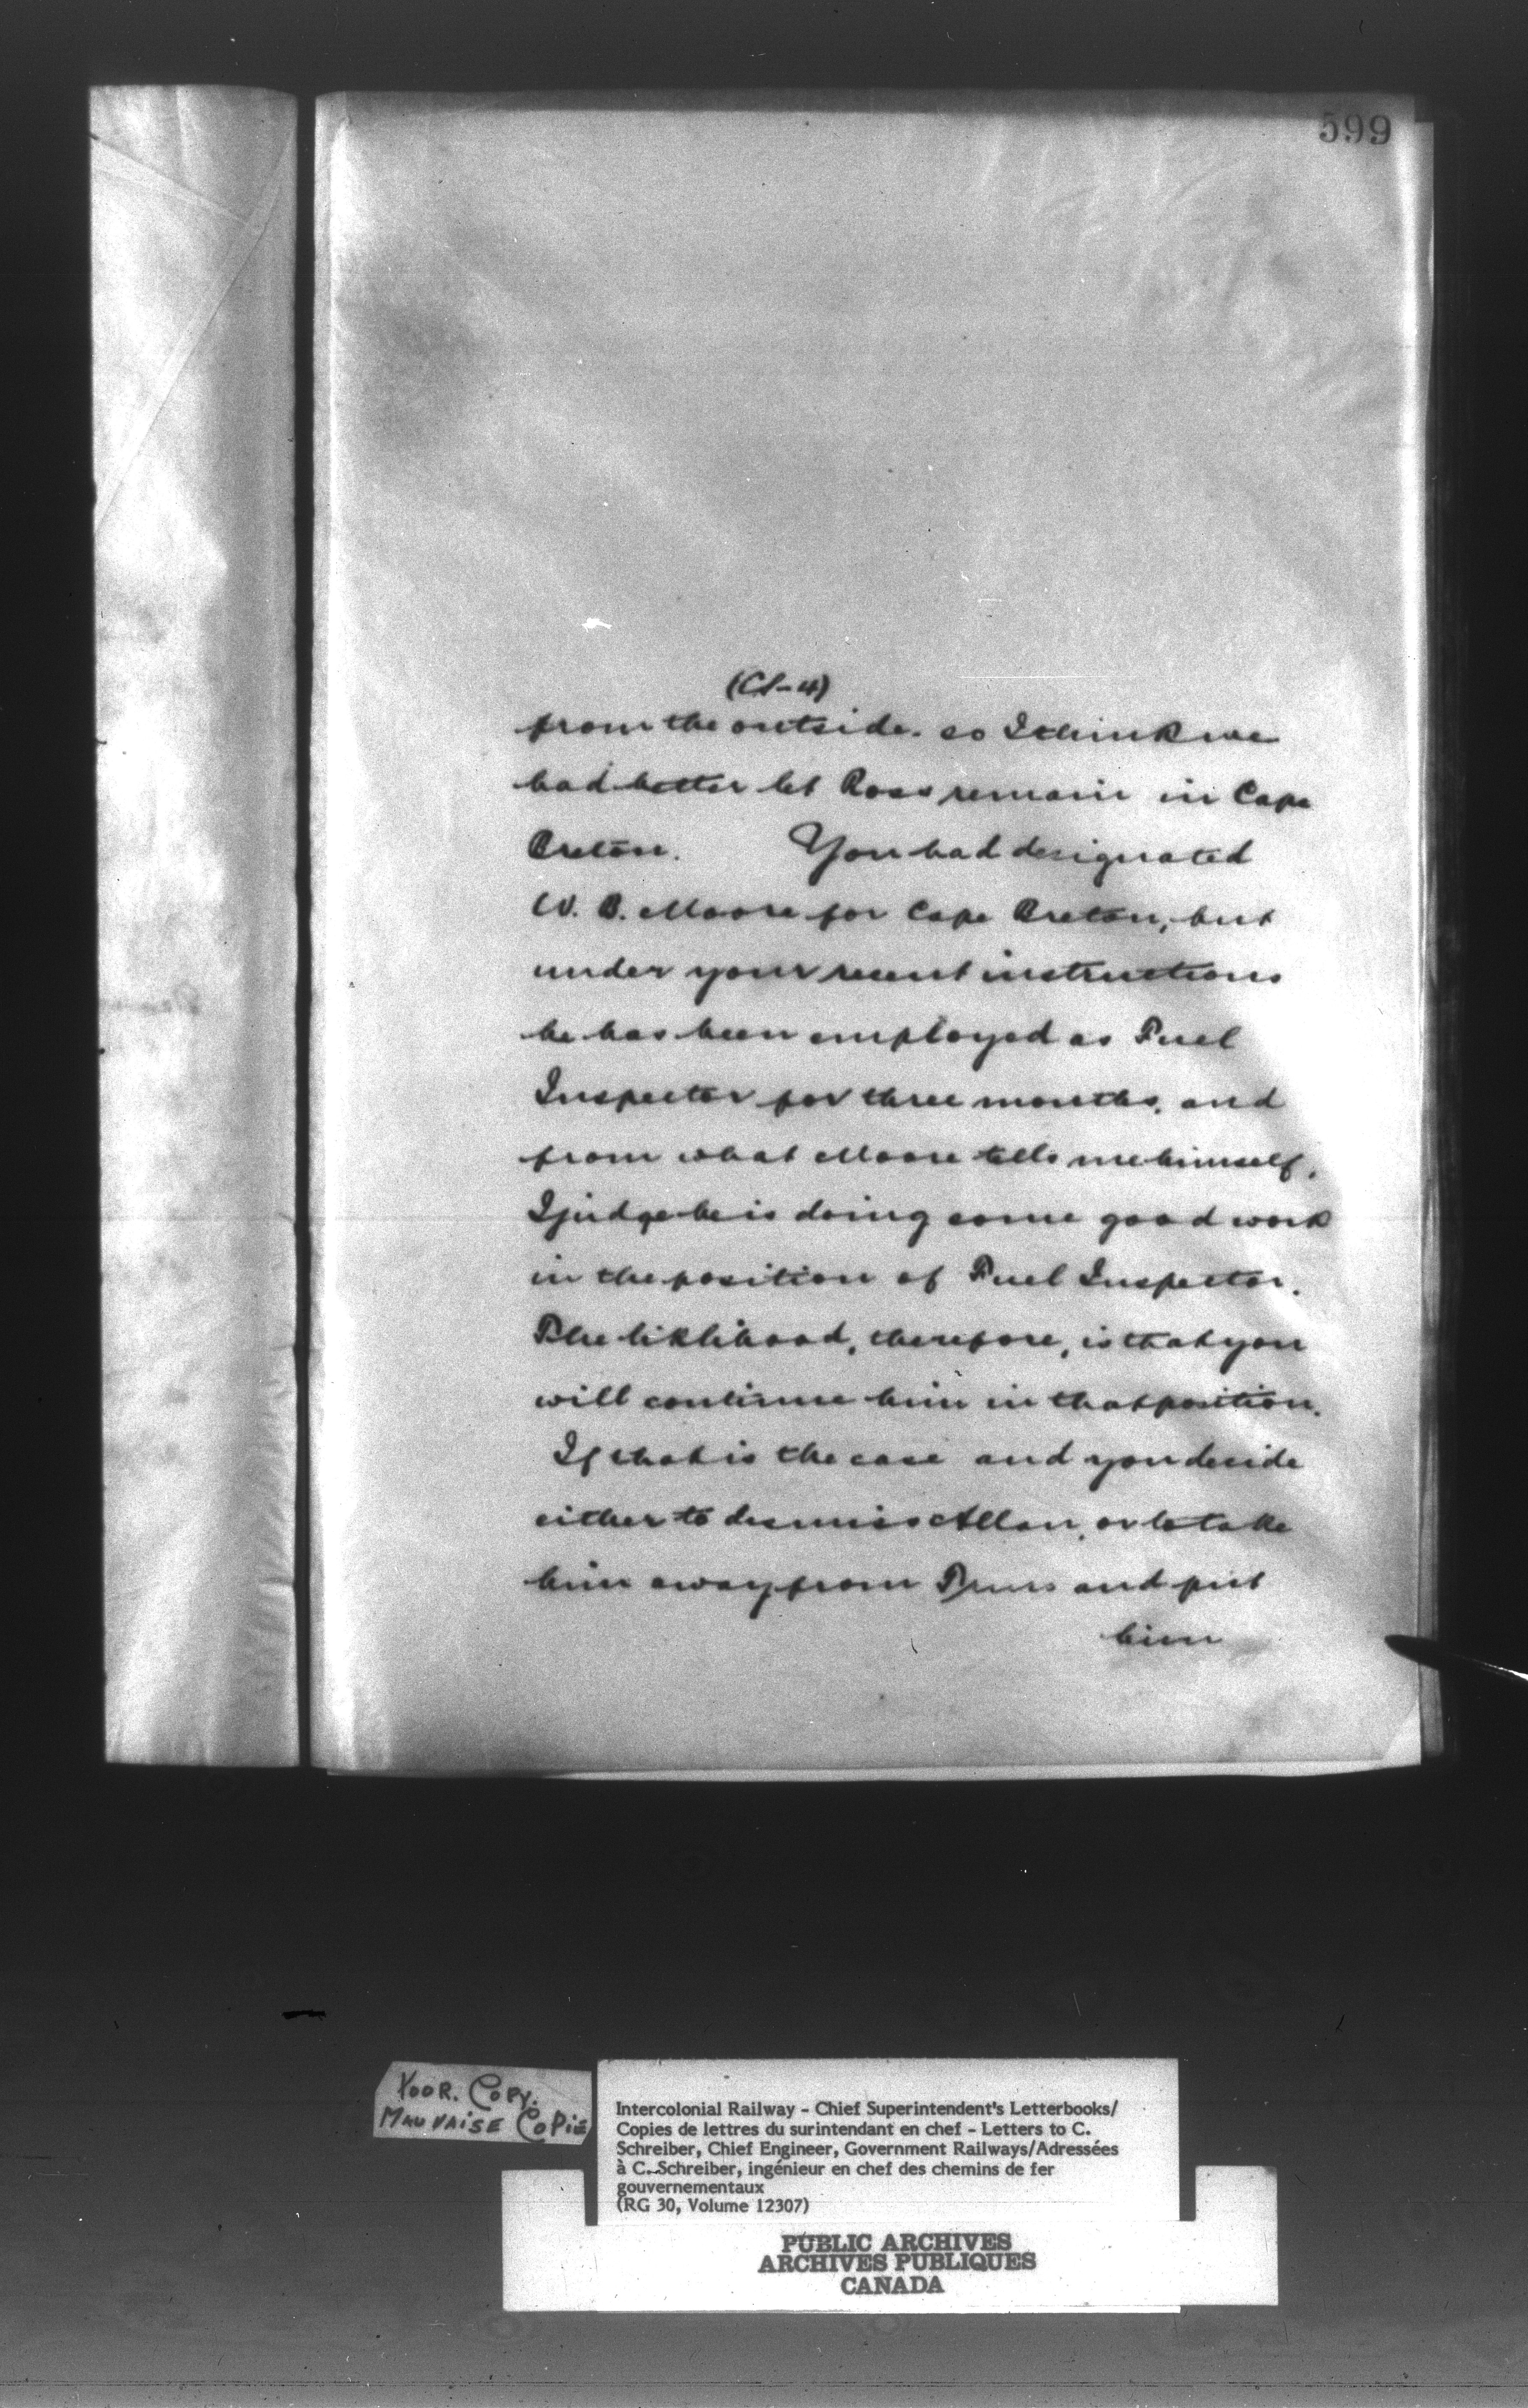 599
(CS-4)
from the outside. so I think we
had better let Ross remain in Cape
Breton. You had designated
W. B. Moore for Cape Breton, but
under your recent instructions
he has been employed as Fuel
Inspector for three months, and
from what Moore tells me himself,
I judge he is doing some good work
in the position of Fuel Inspector.
The liklihood, therefore, is that you
will continue him in that position.
If that is the case and you decide
either to dismiss Allan, or to take
him away from Truro and put
him
POOR. COPY.
MAUVAISE COPIE
Intercolonial Railway - Chief Superintendent's Letterbooks/
Copies de lettres du surintendant en chef - Letters to C.
Schreiber, Chief Engineer, Government Railways/Adressées
à C. Schreiber, ingénieur en chef des chemins de fer
gouvernementaux
(RG 30, Volume 12307)
PUBLIC ARCHIVES
ARCHIVES PUBLIQUES
CANADA